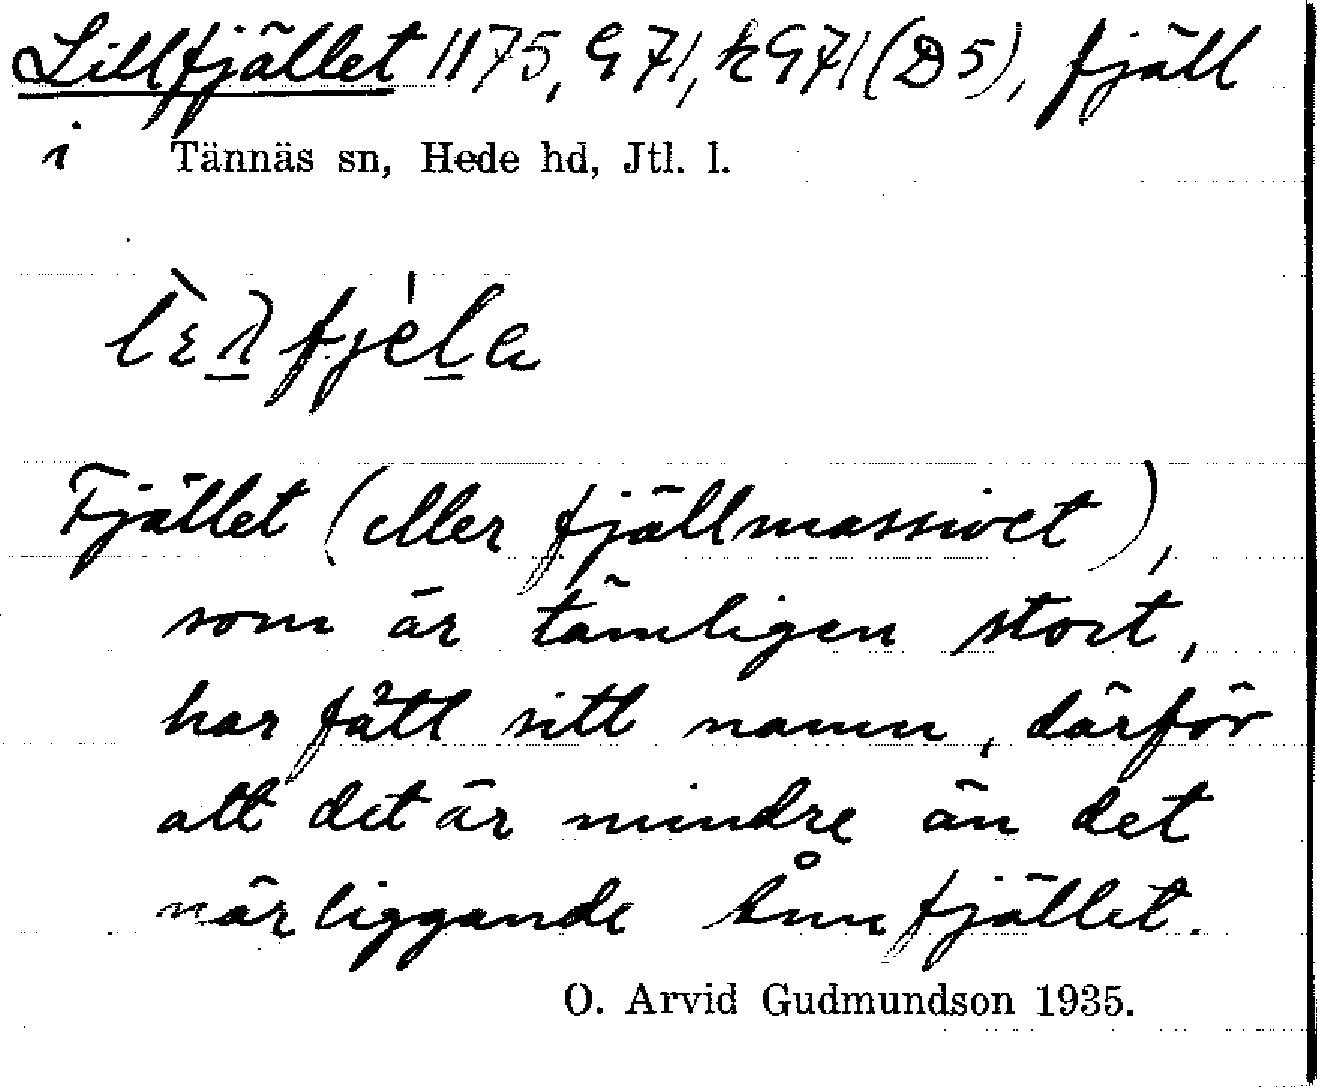 Lillfjället 1175, G 71, k G 71 (D 5), fjäll
i Tännäs sn, Hede hd, Jtl. l.
Fjället (eller fjällmassivet),
som är tämligen stort,
har fått sitt namn, därför
att det är mindre än det
närliggande Ånnfjället.
O. Arvid Gudmundson 1935.